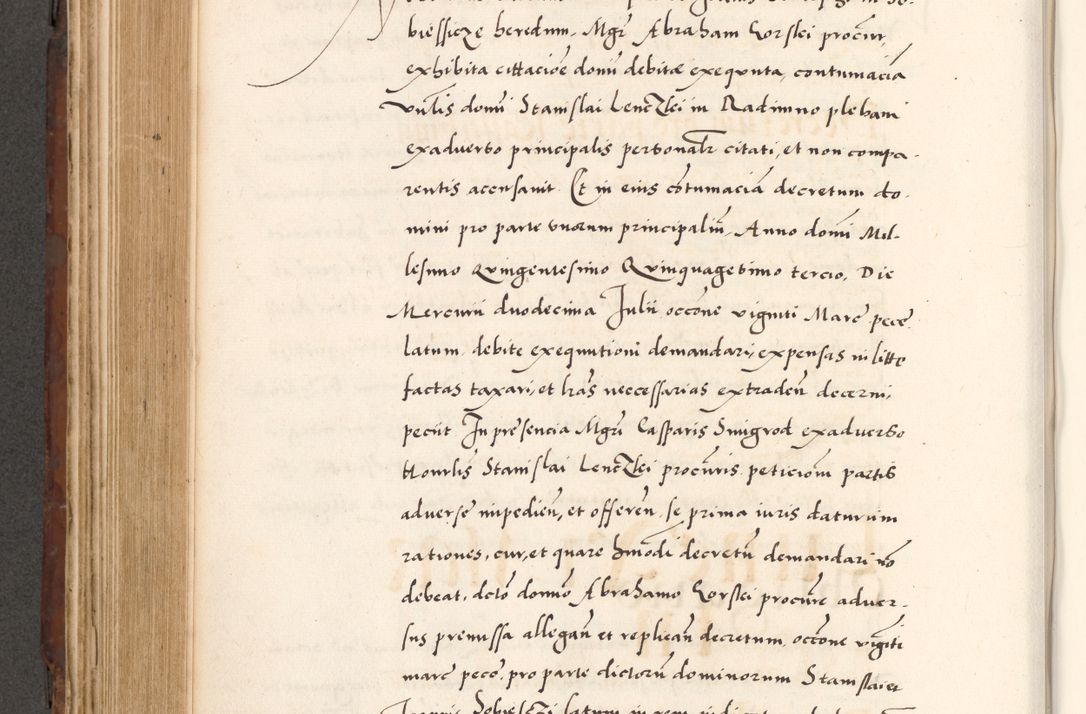 biessicze heredum, Mgr̄ Abraham Gorski procūr,
exhibita cittacōe domī debitæ exeqūta, contumaciā
Vnlis domī Stanislai Lenczki in Radimno plebani
exaduerso principalis personalr̄ citati, et non compa-
rentis accusauit. Et in eius cōtumaciā decretum do-
mini pro parte suorum principaliū, Anno domī Mil-
lesimo Quingentesimo Quinquagesimo tercio, Die
Mercurii duodecima Julii occōne viginti Marc̄ pecc̄
latum, debite exequutioni demandari, expensas in litte
factas taxari, et lrās neccessarias extradeñ decerni,
peciit. In pręsencia Mgrī Casparis Smigrod exaduerso
Honrlis Stanislai Lenczki procūris peticioni partis
adversę impedieñ, et offereñ se prima iuris daturum
rationes, cur, et quare hmōdi decretū demandari nō
debeat, dcto domīo Abrahamo Gorski procūre adver-
sus premissa allegañ et replicañ decretum, occōne vigīti
marc̄ pecc̄, pro parte dictorū dominorum Stanislai et